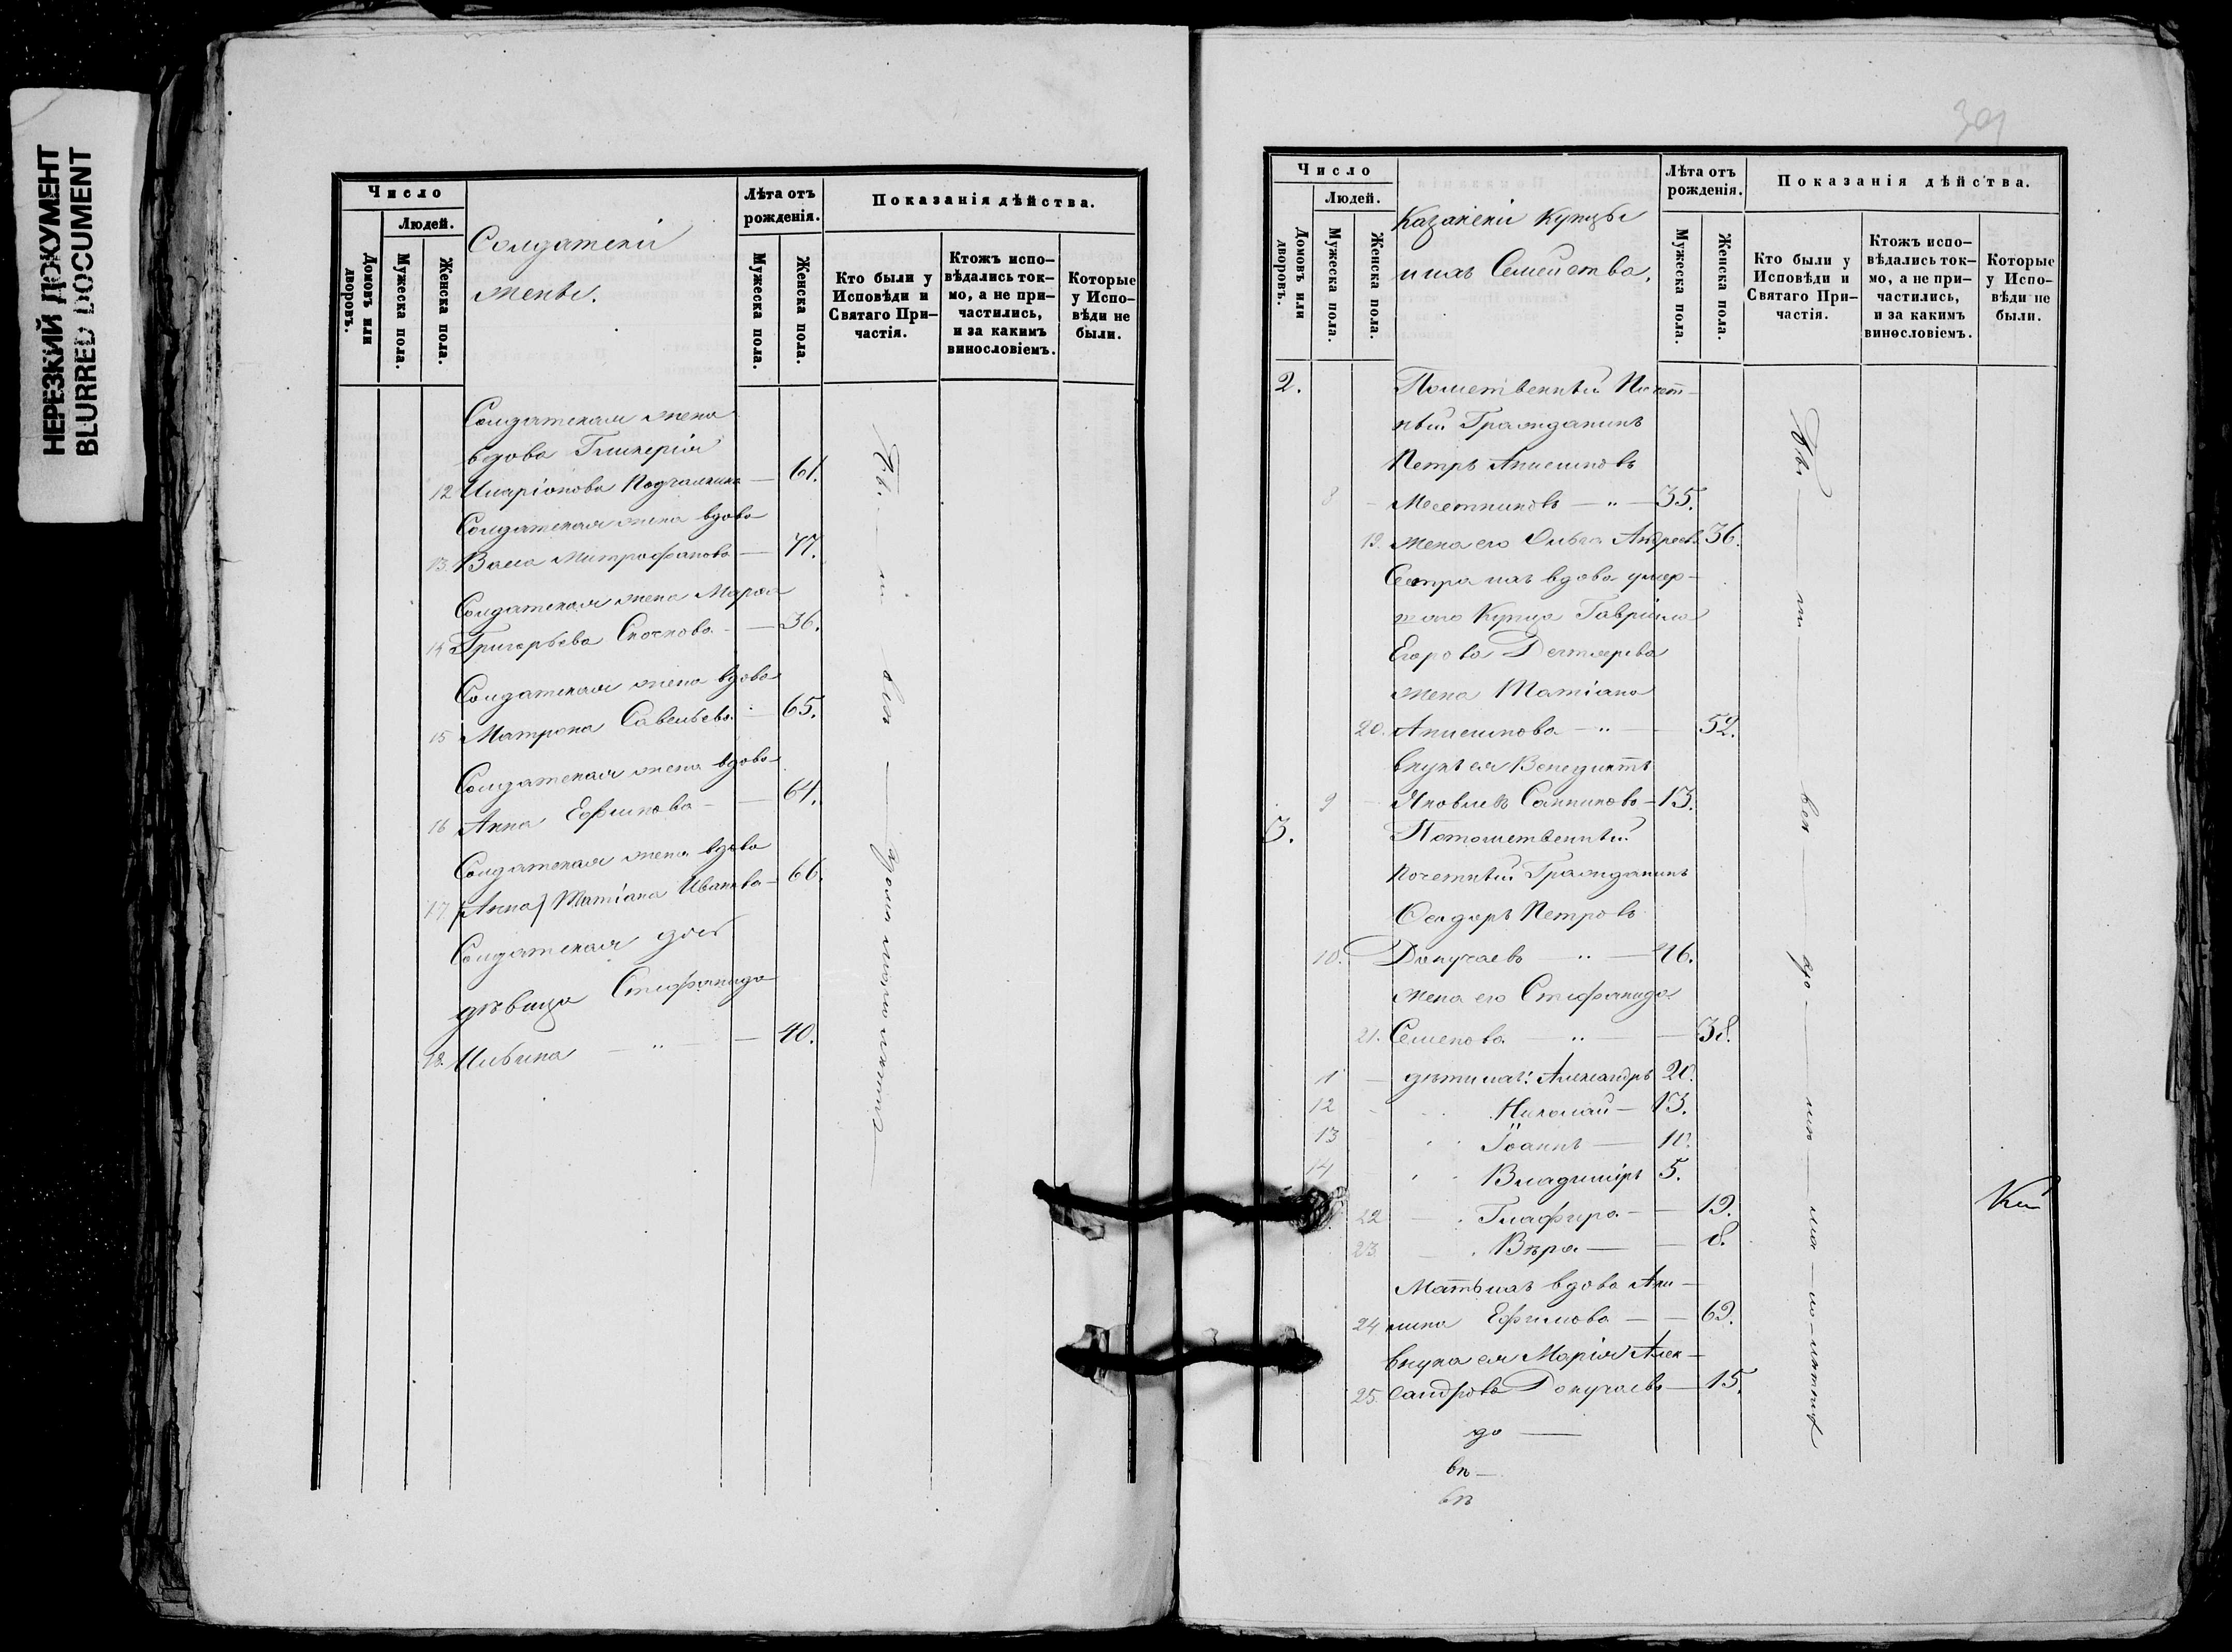 НЕРЕЗКИЙ ДОКУМЕНТ
BLURRED DOCUMENT
Число
Людей.
Домовъ или дворовъ.
Мужеска пола.
Женска пола.
Солдатскіи
жены.
Лѣта отъ
рожденія.
Мужеска пола.
Женска пола.
Показанія дѣйства.
Кто были у
Исповѣди и
Святаго При-
частія.
Ктожъ испо-
вѣдались ток-
мо, а не при-
частились,
и за какимъ
винословіемъ.
Которые
у Испо-
вѣди не
были.
Солдатская жена
вдова Гликерія
12 Иларіонова — 61.
Солдатская жена вдова
13. Васса Митрофанова — 77.
Солдатская жена Марѳа
14 Григорьева — 36.
Солдатская жена вдова
15 Матрона Савельева — 65.
Солдатская жена вдова
16 Анна Ефимова — 64.
Солдатская жена вдова
17. (Анна) Татіана Иванова — 66.
Солдатская дочь
дѣвица Стефанида
18. Ильина — " — 40.
39
Число
Людей.
Домовъ или дворовъ.
Мужеска пола.
Женска пола.
Казанскіи Купцы
и ихъ Семейства.
Лѣта отъ
рожденія.
Мужеска пола.
Женска пола.
Показанія дѣйства.
Кто были у
Исповѣди и
Святаго При-
частія.
Ктожъ испо-
вѣдались ток-
мо, а не при-
частились,
и за какимъ
винословіемъ.
Которые
у Испо-
вѣди не
были.
2. Почет-
ный Гражданинъ
Петръ Анисимовъ
8 Месетниковъ — " — 35.
19. жена его Ольга Андреев. 36.
Сестра ихъ вдова умер-
шаго Купца Гавріила
Егорова
жена Татіана
20. Анисимова — " — 52.
внукъ ея Венедиктъ
9 Яковлевъ Санниковъ — 13.
3. Потомственный
Почетный Гражданинъ
Ѳеодоръ Петровъ
10. Докучаевъ — " — 46.
жена его Стефанида
21. Семенова — " — 38.
11 дѣти ихъ: Александръ 20.
12 Николай — 13.
13 Іоаннъ — 10.
14 Владиміръ 5.
22 Глафира — 19.
23 Вѣра — 8.
Мать ихъ вдова Аки-
24 лина Ефимова — 69.
внука ея Марія Алек-
25. сандрова Докучаева — 15.
до —
вѣ —
вѣ